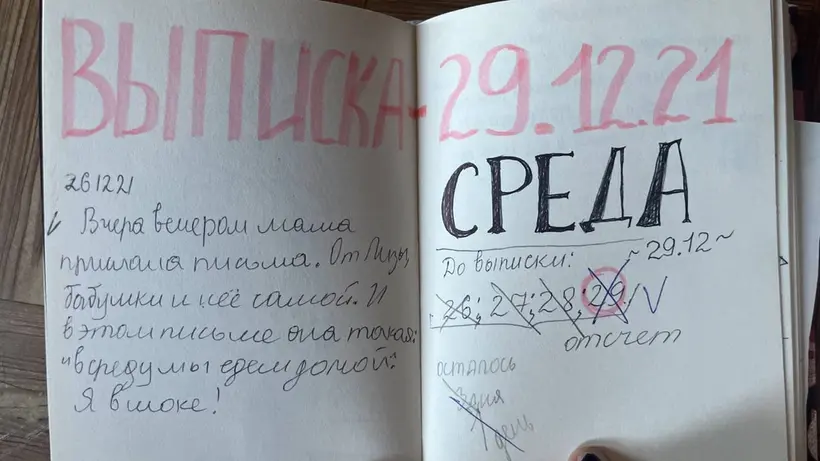 ВЫПИСКА-29.12.21
261221
Вчера вечером мама
прислала письма. От Лизы,
бабушки и неё самой. И
в этом письме она такая:
"в среду мы едем домой".
Я в шоке!
СРЕДА
До выписки: ~29.12~
26; 27; 28; 29! V
отсчет
осталось
3 дня
1 день